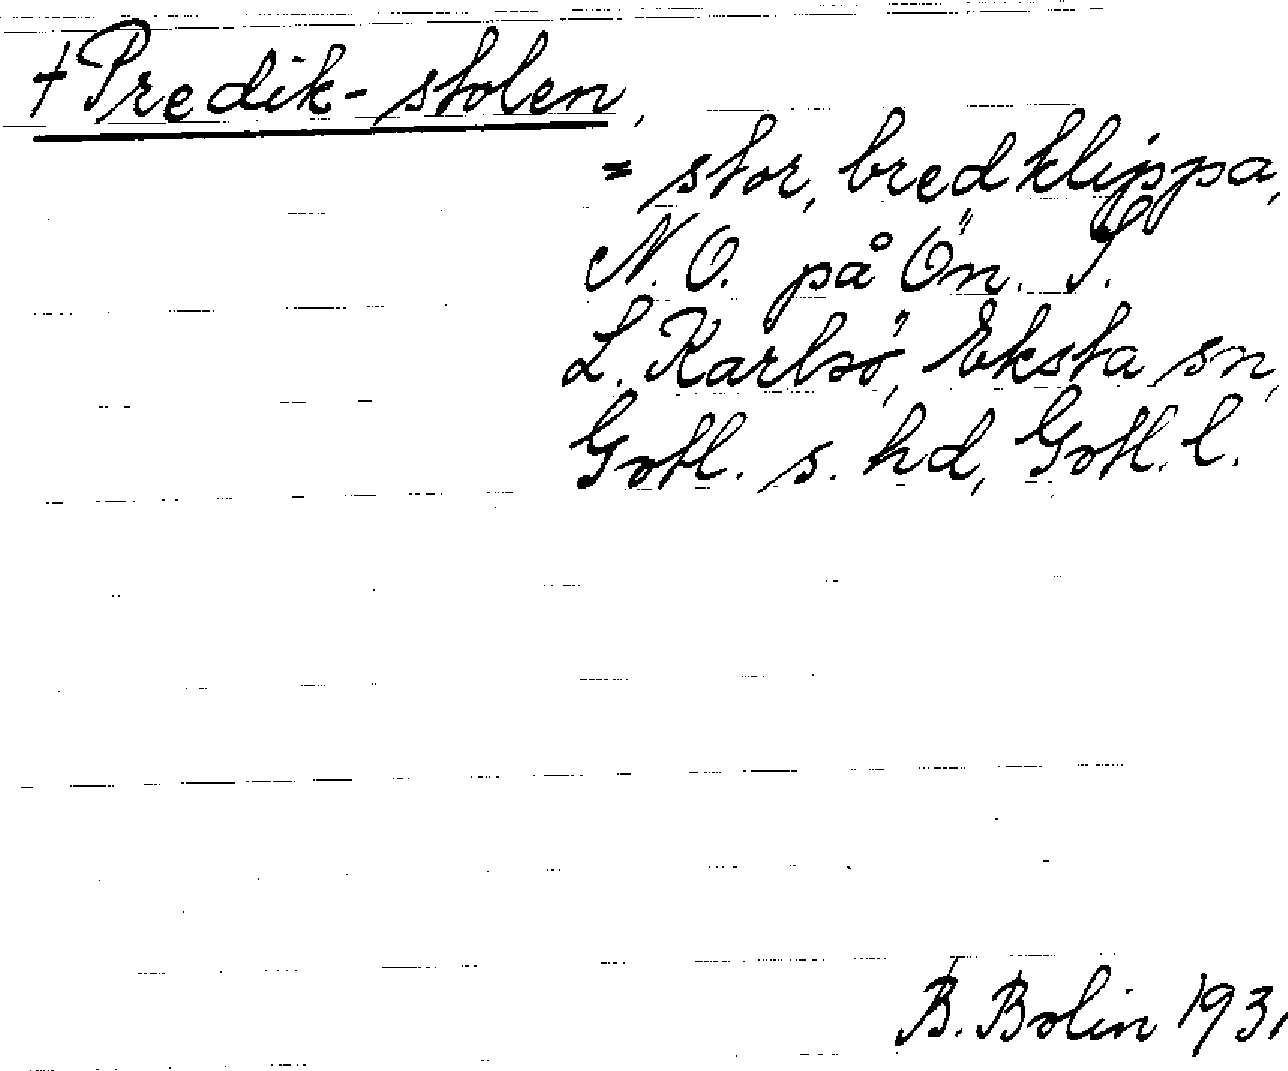 + Predik-stolen,
= stor, bred klippa,
N.O. på Ön. I.
L. Karlsö, Eksta sn,
Gotl. s. hd, Gotl. l.
B. Bolin 1931